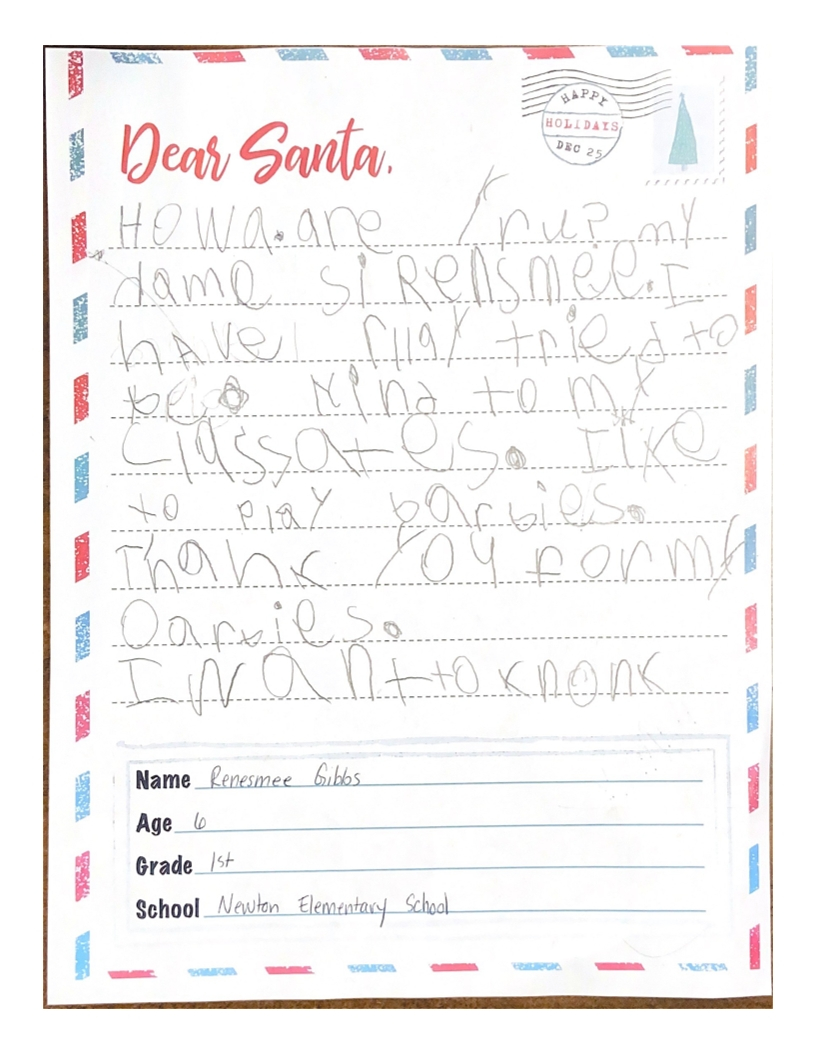 HAPPY
HOLIDAYS
DEC 25
Dear Santa,
HOWa.are Yru? my
name si Rensmee. I
have rllay tried to
be kind to my
classates. I like
to play barbies.
Thank you for my
Oarbies.
I want to know
Name Renesmee Gibbs
Age 6
Grade 1st
School Newton Elementary School